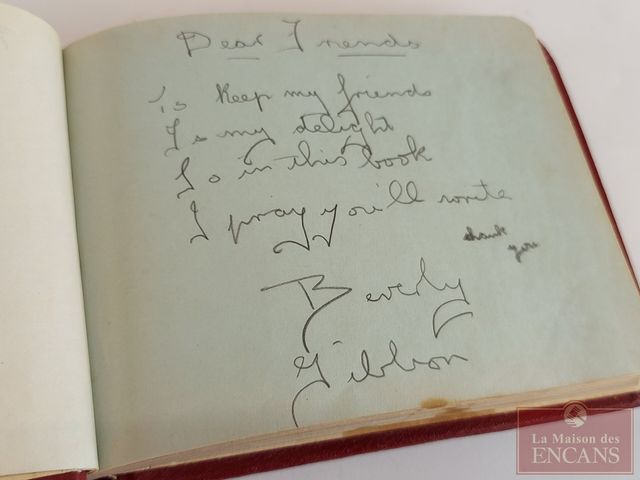 Dear Friends
To Keep my friends
Is my delight
So in this book
I pray you'll write
thank
you
Beverly
Gibbon
La Maison des
ENCANS